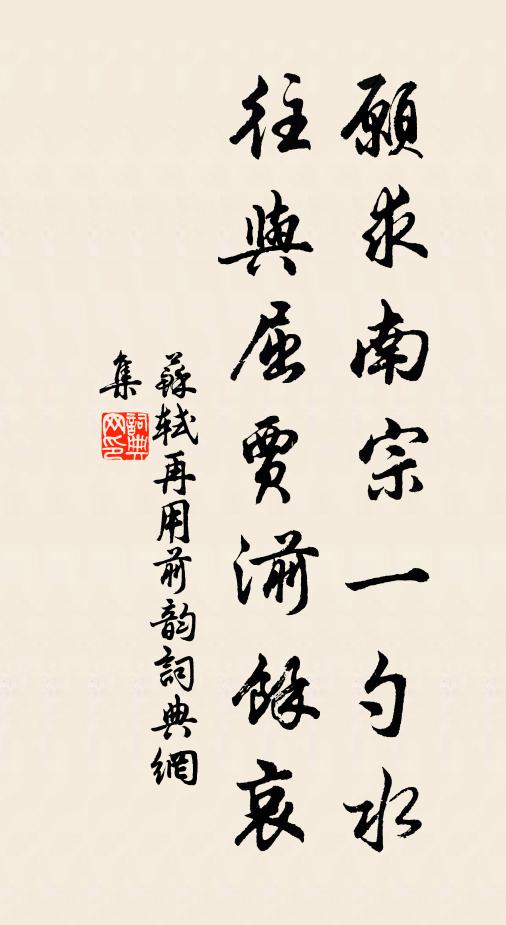 願求南宗一勺水
往與屈賈湔餘哀
蘇軾再用前韵詞典網
集
詞典网印